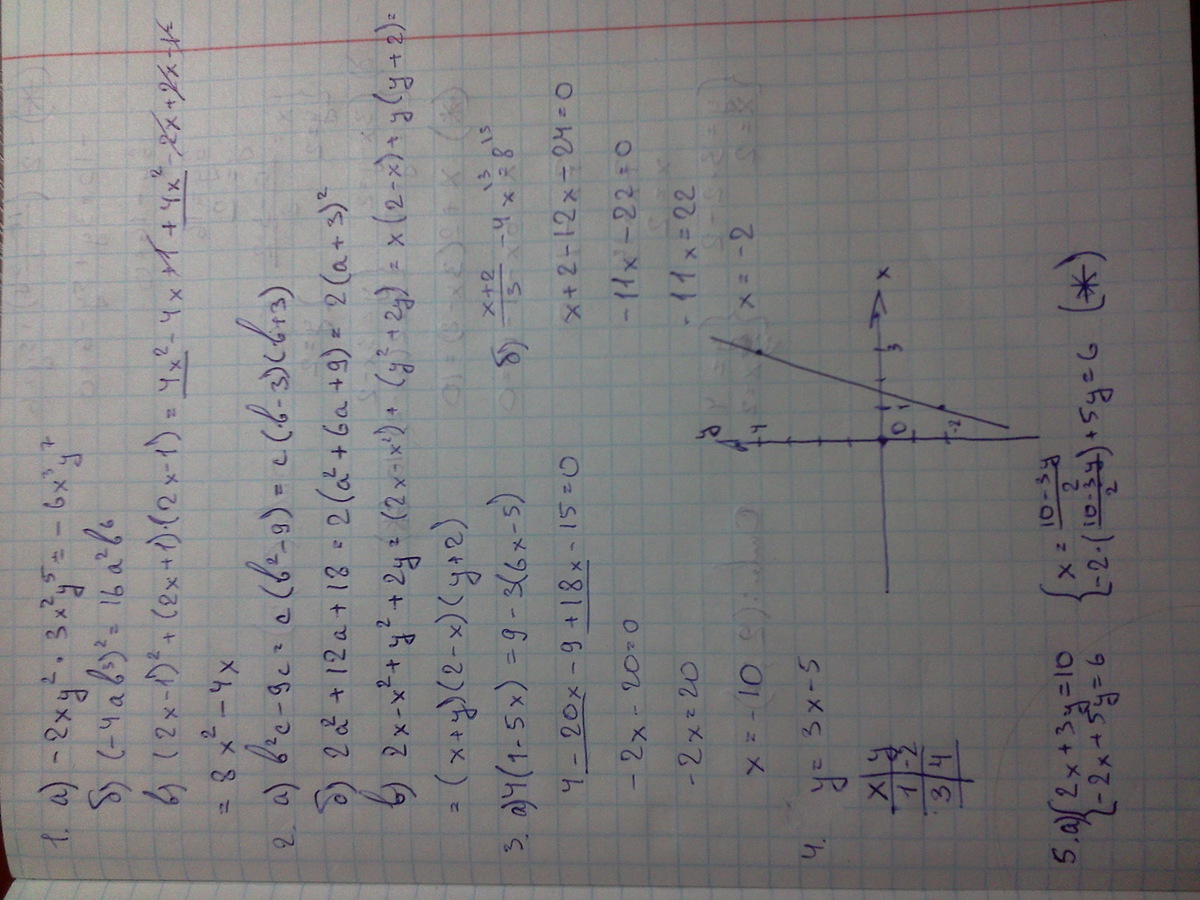 1. а) -2xy² · 3x²y⁵ = -6x³y⁷
б) (-4ab³)² = 16a²b⁶
в) (2x-1)² + (2x+1)·(2x-1) = 4x² - 4x + 1 + 4x² - 2x + 2x - 1 =
= 8x² - 4x
2. а) b²c - 9c = c(b² - 9) = c(b-3)(b+3)
б) 2a² + 12a + 18 = 2(a² + 6a + 9) = 2(a+3)²
в) 2x - x² + y² + 2y = (2x - x²) + (y² + 2y) = x(2-x) + y(y+2) =
= (x+y)(2-x)(y+2)
3. а) 4(1-5x) = 9 - 3(6x-5)
4 - 20x - 9 + 18x - 15 = 0
-2x - 20 = 0
-2x = 20
x = -10
б) (x+2)/3 - 4x = 8
x + 2 - 12x - 24 = 0
-11x - 22 = 0
-11x = 22
x = -2
4. y = 3x - 5
x y
1 -2
3 4
y
4
0 1 3 x
-2
5. а) { 2x + 3y = 10
{ -2x + 5y = 6
{ x = (10-3y)/2
{ -2·((10-3y)/2) + 5y = 6 (*)